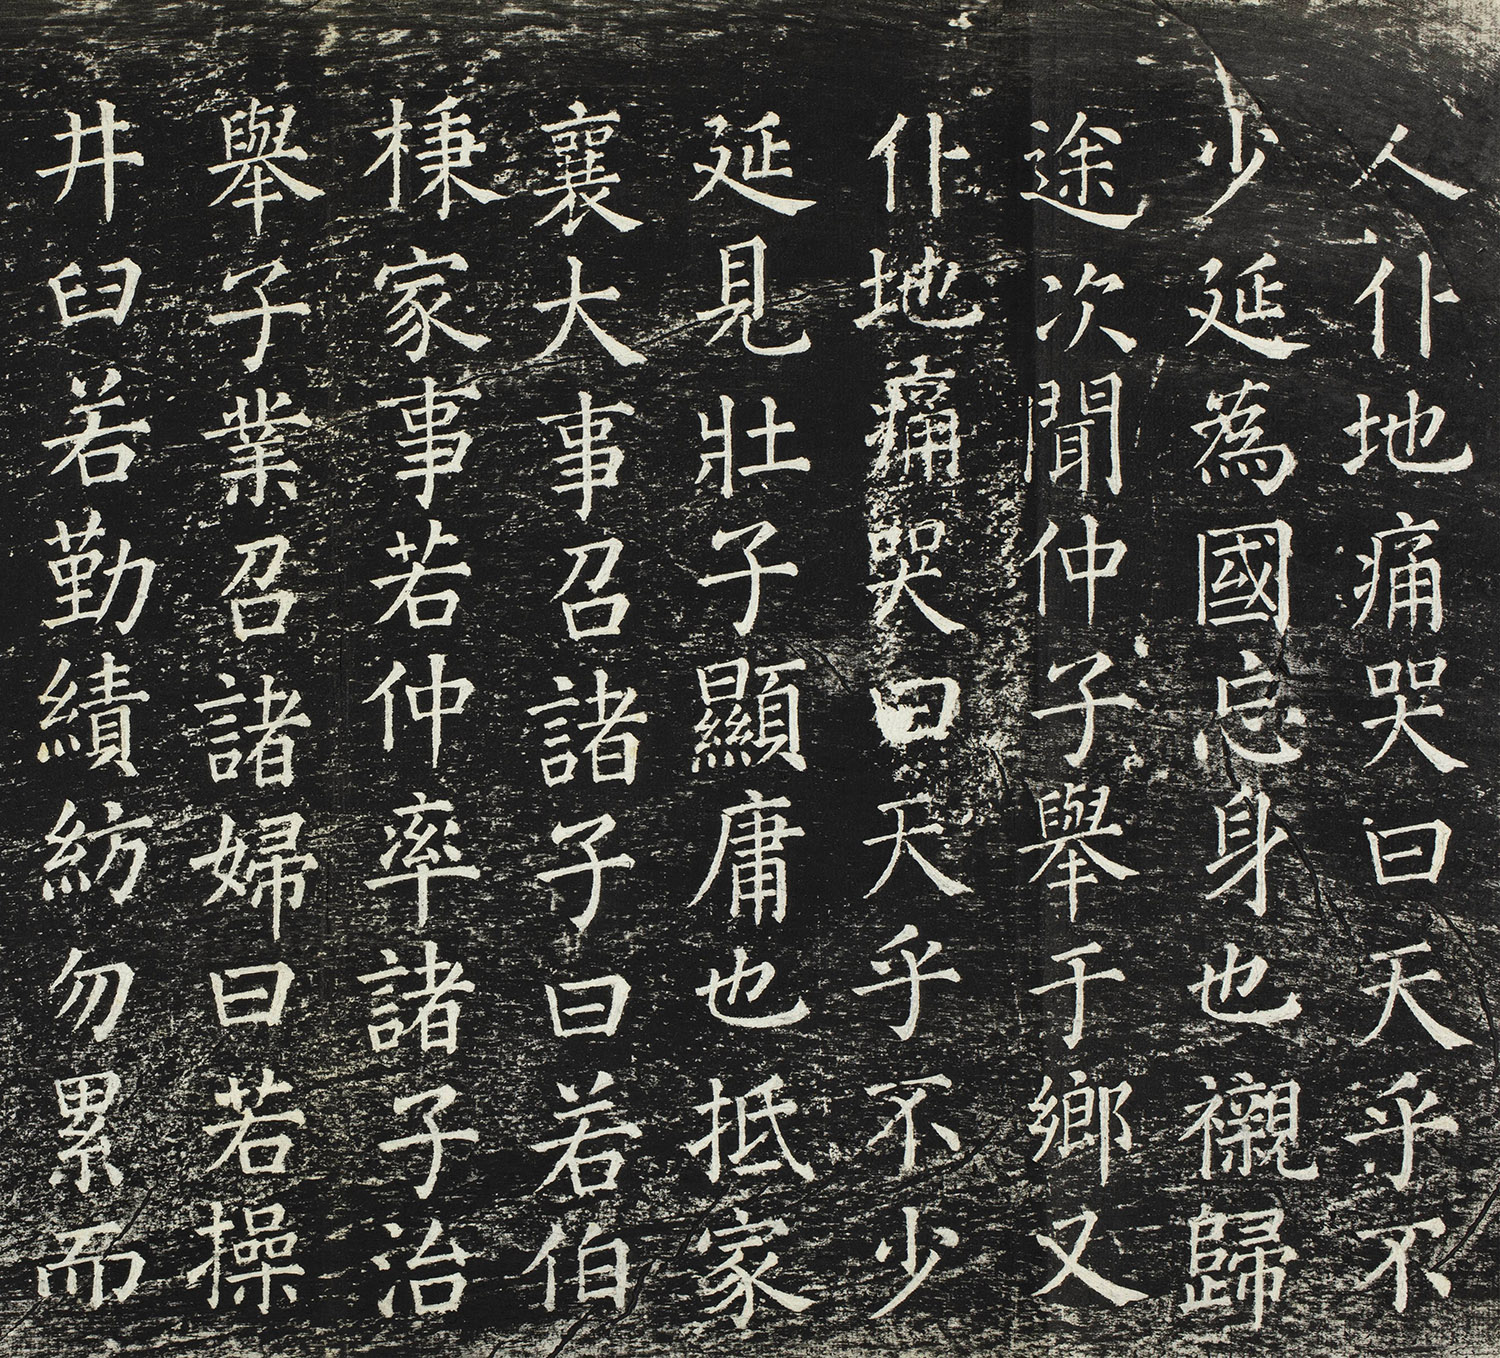 人仆地痛哭曰天乎不
少延為國忘身也襯歸
途次聞仲子舉于鄉又
仆地痛哭曰天乎不少
延見壯子顯庸也抵家
襄大事召諸子曰若伯
秉家事若仲率諸子治
舉子業召諸婦曰若操
井臼若勤績紡勿累而